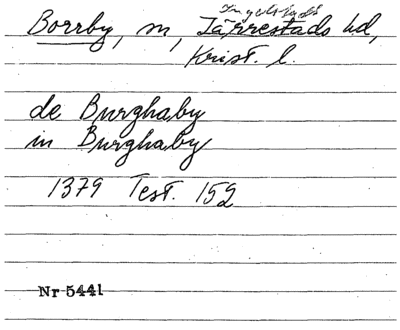 Ingelstads
Borrby, sn, Järrestads hd,
Krist. l.
de Burghaby
in Burghaby
1379 Test. 152
Nr 5441